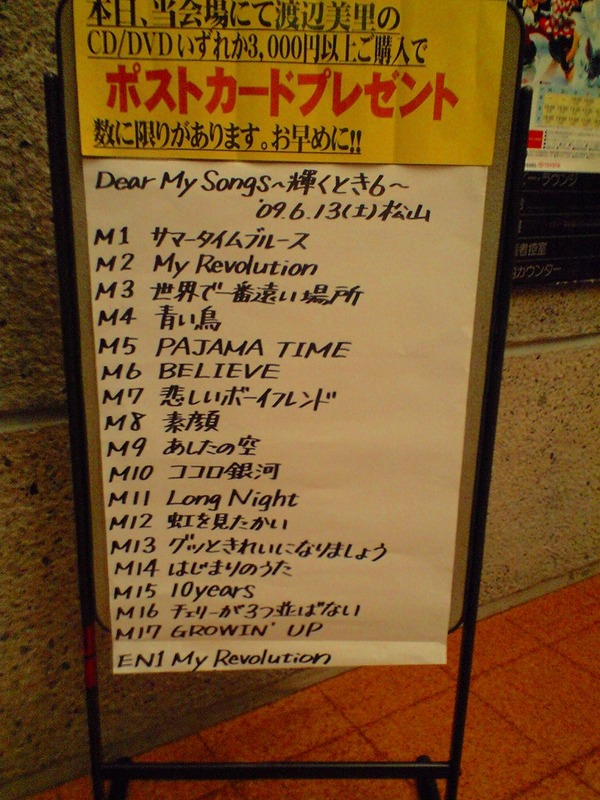 本日、当会場にて渡辺美里の
CD/DVDいずれか3,000円以上ご購入で
ポストカードプレゼント
数に限りがあります。お早めに!!
Dear My Songs～輝くとき6～
'09.6.13(土)松山
M1 サマータイムブルース
M2 My Revolution
M3 世界で一番遠い場所
M4 青い鳥
M5 PAJAMA TIME
M6 BELIEVE
M7 悲しいボーイフレンド
M8 素顔
M9 あしたの空
M10 ココロ銀河
M11 Long Night
M12 虹を見たかい
M13 グッときれいになりましょう
M14 はじまりのうた
M15 10years
M16 チェリーが3つ並ばない
M17 GROWIN' UP
EN1 My Revolution
者控室
カウンター